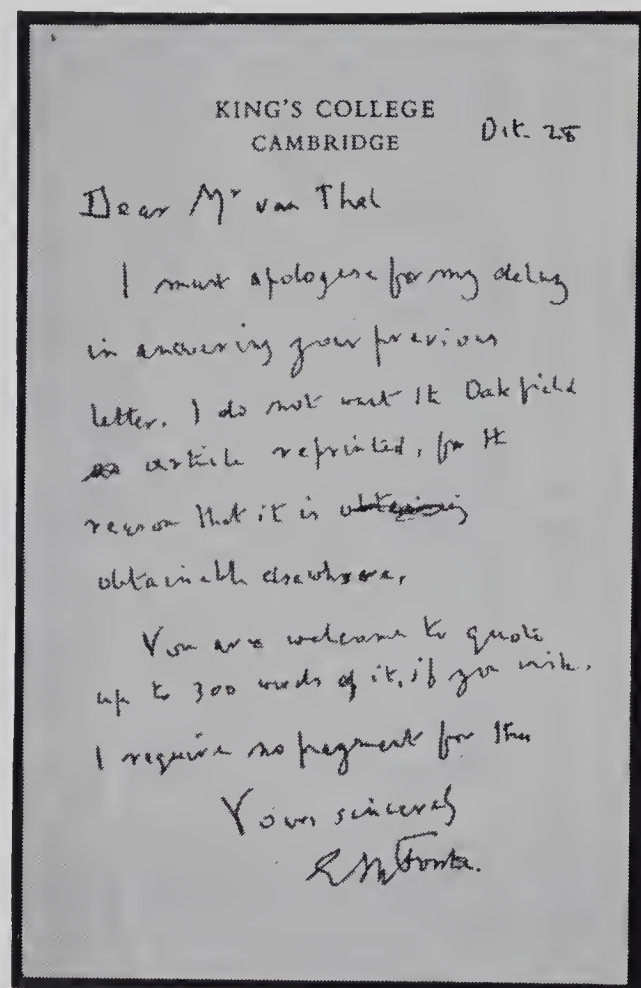 KING'S COLLEGE
CAMBRIDGE
Oct. 28
Dear Mr van Thal
I must apologise for my delay
in answering your previous
letter. I do not want the Oakfield
article reprinted, for the
reason that it is obtaining
obtainable elsewhere.
You are welcome to quote
up to 300 words of it, if you wish.
I require no payment for this
Yours sincerely
EM Forster.